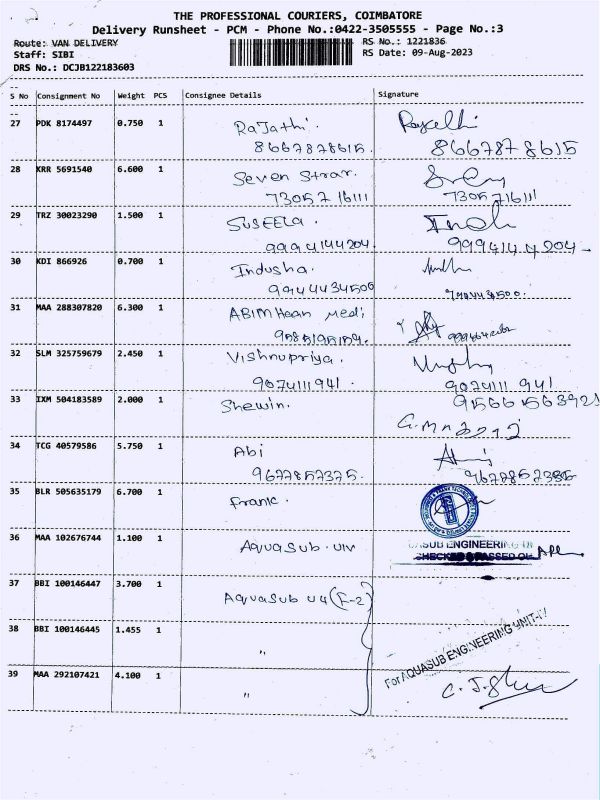 THE PROFESSIONAL COURIERS, COIMBATORE
Delivery Runsheet - PCM - Phone No.:0422-3505555 - Page No.:3
Route: VAN DELIVERY RS No.: 1221836
Staff: SIBI RS Date: 09-Aug-2023
DRS No.: DCJB122183603
S No Consignment No Weight PCS Consignee Details Signature
27 PDK 8174497 0.750 1 Rajathi.
8667878615. 8667878615
28 KRR 5691540 6.600 1 Seven Strar.
7305716111 7305716111
29 TRZ 30023290 1.500 1 SUSEELA.
9994144204. 9994144204
30 KDI 866926 0.700 1 Indusha.
9944434500
31 MAA 288307820 6.300 1 ABIMHean Medi
32 SLM 325759679 2.450 1 Vishnupriya.
9074111941. 9074111941
33 IXM 504183589 2.000 1 Shewin. 9566156392
34 TCG 40579586 5.750 1 Abi
9677857375.
35 BLR 505635179 6.700 1 Frank.
36 MAA 102676744 1.100 1 Aquasub. UIV
ASUB ENGINEERING
CHECKED & PASSED
37 BBI 100146447 3.700 1 Aquasub U4 (F-2)
38 BBI 100146445 1.455 1 "
For AQUASUB ENGINEERING UNIT-IV
39 MAA 292107421 4.100 1 "